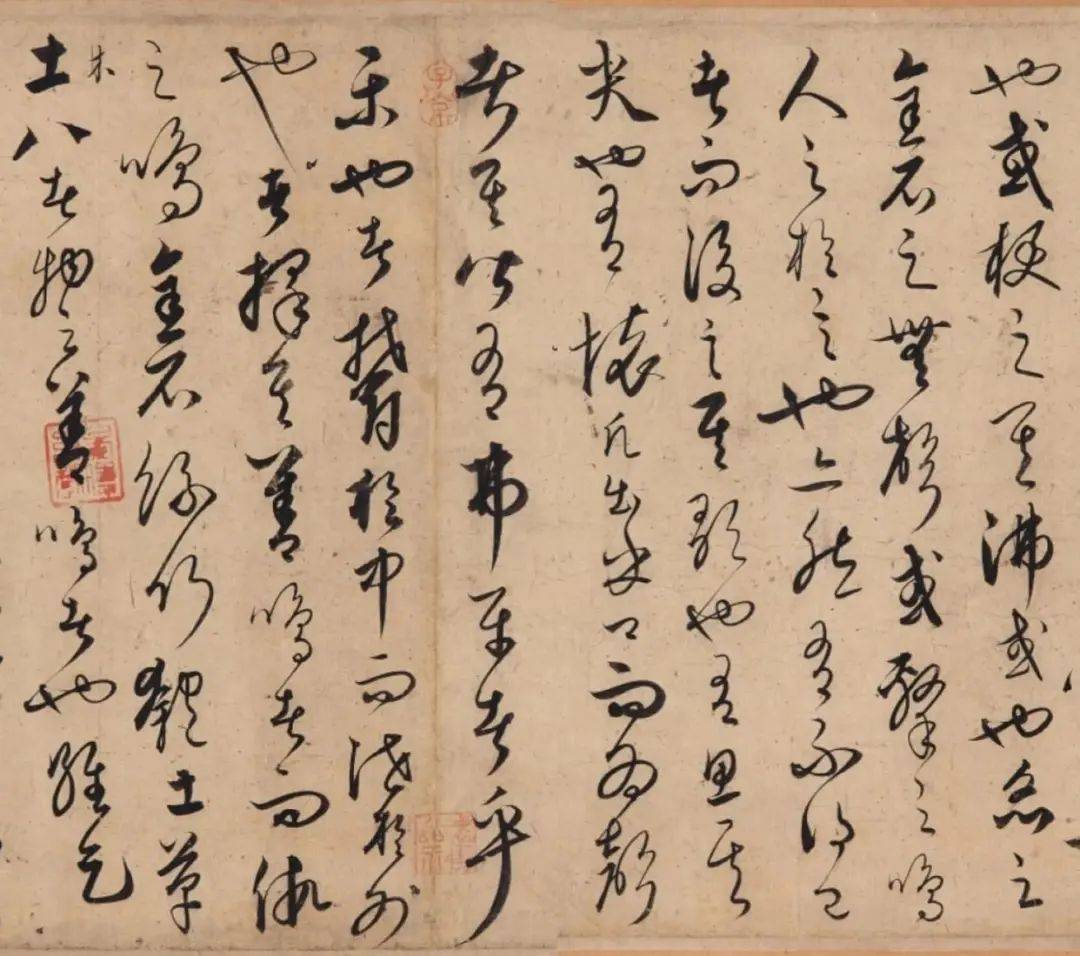 也或梗之其沸或也炙之
金石之無聲或擊之鳴
人之於言也亦然有不得已
者而後言其歌也有思其
哭也有懷凡出乎口而為聲
者其皆有弗平者乎
樂也者鬱於中而泄於外
也者擇其善鳴者而假
之鳴金石絲竹匏土革
土木八者物之善鳴者也維天